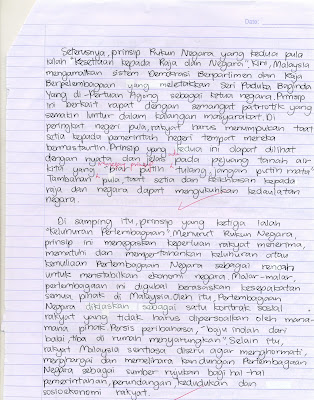 Date:
Seterusnya, prinsip Rukun Negara yang kedua pula
ialah "Kesetiaan kepada Raja dan Negara". Kini, Malaysia
mengamalkan sistem Demokrasi Berparlimen dan Raja
Berpelembagaan yang meletakkan Seri Paduka Baginda
Yang di-Pertuan Agong sebagai ketua negara. Prinsip
ini berkait rapat dengan semangat patriotik yang
semakin luntur dalam kalangan masyarakat. Di
peringkat negeri pula, rakyat harus menumpukan taat
setia kepada pemerintah negeri tempat mereka
bermastautin. Prinsip yang kedua ini dapat dilihat
dengan nyata dan jelas pada pejuang tanah air
kita yang "biar putih tulang, jangan putih mata".
Tambahan pula, taat setia dan kepada
raja dan negara dapat mengukuhkan kedaulatan
negara.
Di samping itu, prinsip yang ketiga ialah
"Keluhuran Perlembagaan". Menurut Rukun Negara,
prinsip ini menegaskan keperluan rakyat menerima,
mematuhi dan mempertahankan keluhuran atau
kemuliaan Perlembagaan Negara sebagai
untuk menstabilkan ekonomi negara. Malar-malar
perlembagaan ini digubal berasaskan kesepakatan
semua pihak di Malaysia. Oleh itu, Perlembagaan
Negara dikiaskan sebagai satu kontrak sosial
rakyat yang tidak harus dipersoalkan oleh mana-
mana pihak. Persis peribahasa, "bayu indah dari
balai, tiba di rumah menyarungkan". Selain itu,
rakyat Malaysia sentiasa diseru agar menghormati,
menghargai dan memelihara kandungan Perlembagaan
Negara sebagai sumber rujukan bagi hal-hal
pemerintahan, perundangan, kedudukan dan
sosioekonomi rakyat.